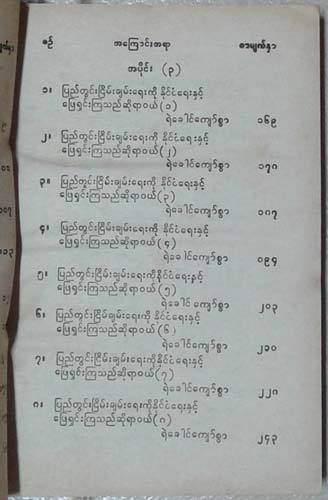 စဉ် အကြောင်းအရာ စာမျက်နှာ
အပိုင်း (၃)
၁။ ပြည်တွင်းငြိမ်းချမ်းရေးကို နိုင်ငံရေးနှင့်
ဖြေရှင်းကြသည်ဆိုရာဝယ်(၁)
ရဲဘော်ကျော်စွာ ၁၆၉
၂။ ပြည်တွင်းငြိမ်းချမ်းရေးကို နိုင်ငံရေးနှင့်
ဖြေရှင်းကြသည်ဆိုရာဝယ်(၂)
ရဲဘော်ကျော်စွာ ၁၇၈
၃။ ပြည်တွင်းငြိမ်းချမ်းရေးကို နိုင်ငံရေးနှင့်
ဖြေရှင်းကြသည်ဆိုရာဝယ်(၃)
ရဲဘော်ကျော်စွာ ၁၈၇
၄။ ပြည်တွင်းငြိမ်းချမ်းရေးကို နိုင်ငံရေးနှင့်
ဖြေရှင်းကြသည်ဆိုရာဝယ်(၄)
ရဲဘော်ကျော်စွာ ၁၉၄
၅။ ပြည်တွင်းငြိမ်းချမ်းရေးကိုနိုင်ငံရေးနှင့်
ဖြေရှင်းကြသည်ဆိုရာဝယ်(၅)
ရဲဘော်ကျော်စွာ ၂၀၃
၆။ ပြည်တွင်းငြိမ်းချမ်းရေးကို နိုင်ငံရေးနှင့်
ဖြေရှင်းကြသည်ဆိုရာဝယ်(၆)
ရဲဘော်ကျော်စွာ ၂၁၀
၇။ ပြည်တွင်းငြိမ်းချမ်းရေးကို နိုင်ငံရေးနှင့်
ဖြေရှင်းကြသည်ဆိုရာဝယ်(၇)
ရဲဘော်ကျော်စွာ ၂၂၈
၈။ ပြည်တွင်းငြိမ်းချမ်းရေးကိုနိုင်ငံရေးနှင့်
ဖြေရှင်းကြသည်ဆိုရာဝယ်(၈)
ရဲဘော်ကျော်စွာ ၂၄၃